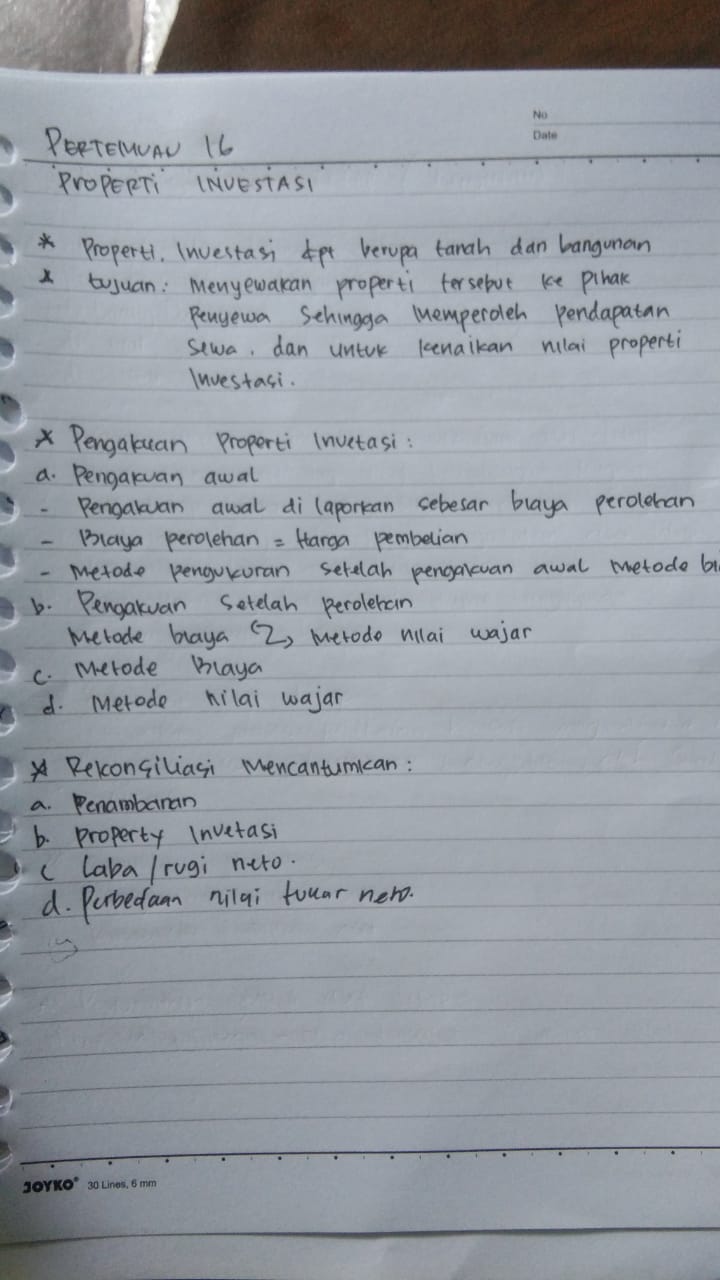 No
Date
PERTEMUAN 16
PROPERTI INVESTASI
* Properti. Investasi dpt berupa tanah dan bangunan
* tujuan : Menyewakan properti tersebut ke pihak
Penyewa Sehingga Memperoleh Pendapatan
Sewa. dan untuk kenaikan nilai properti
Investasi.
* Pengakuan Properti Invetasi :
a. Pengakuan awal
- Pengakuan awal di laporkan sebesar biaya perolehan
- Biaya perolehan = Harga pembelian
- Metode pengukuran setelah pengakuan awal Metode
b. Pengakuan Setelah perolehan
Metode biaya Metode nilai wajar
c. Metode Biaya
d. Metode nilai wajar
* Rekonsiliasi Mencantumkan :
a. Penambahan
b. Property Invetasi
c Laba / rugi neto.
d. Perbedaan nilai tukar neto.
JOYKO 30 Lines, 6 mm